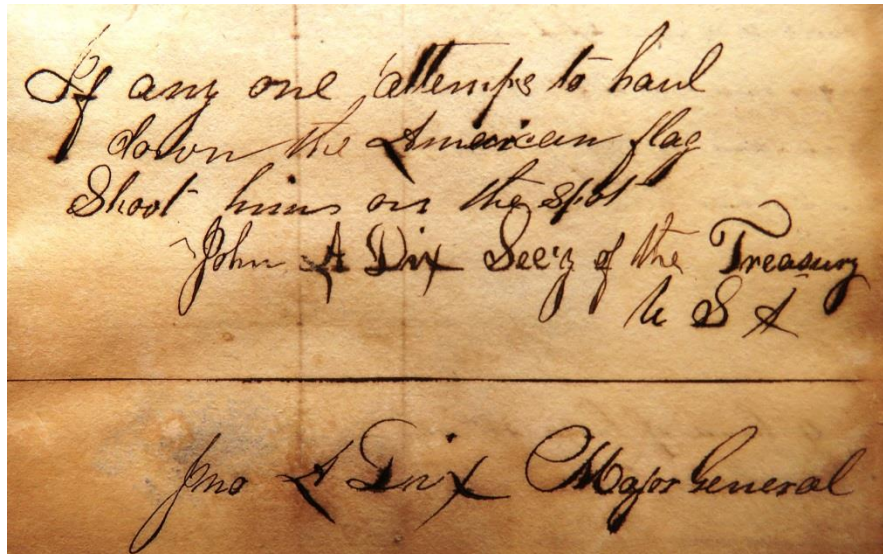 If any one attemps to haul
down the American flag
Shoot him on the spot
John A Dix Sec'y of the Treasury
U S A
Jno A Dix Major General